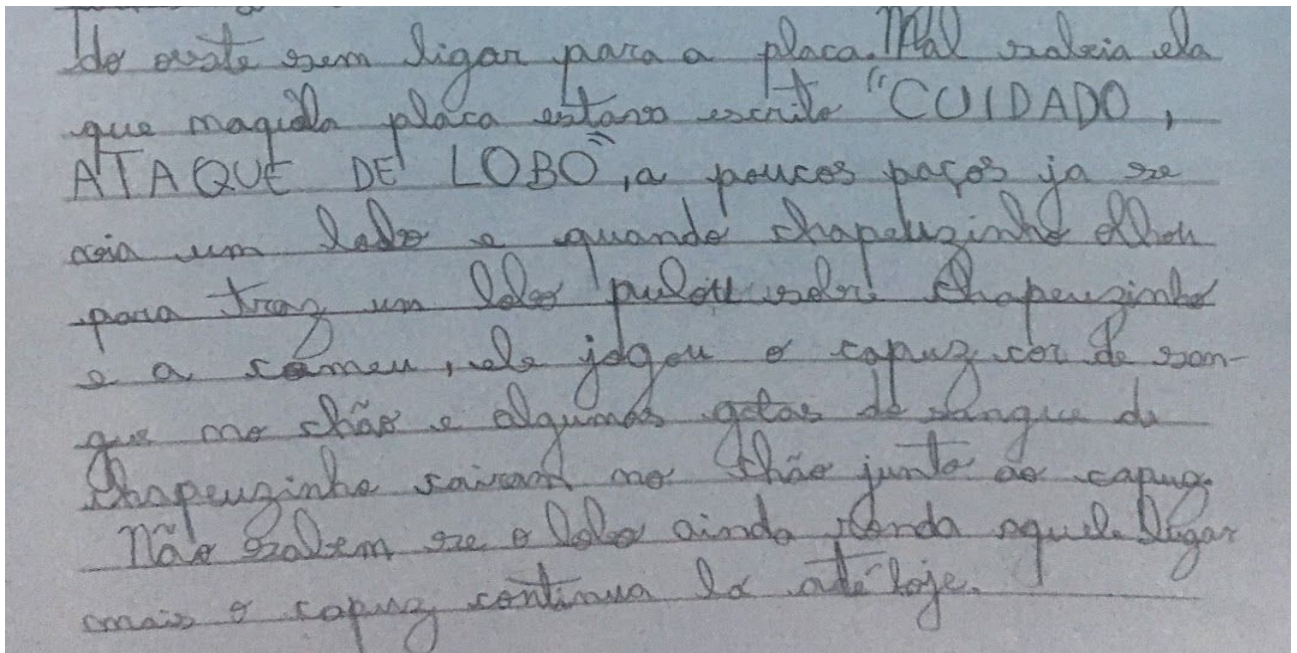 do oeste sem ligar para a placa. Mal sabia ela
que naquela placa estava escrito "CUIDADO,
ATAQUE DE LOBO", a poucos paços ja se
via um lobo e quando chapeuzinho olhou
para traz um lobo pulou sobre Chapeuzinho
e a comeu, ele jogou o capuz cor de san-
gue no chão e algumas gotas de sangue de
Chapeuzinho cairam no chão junto ao capuz.
Não sabem se o lobo ainda ronda aquele lugar
mais o capuz continua la até hoje.